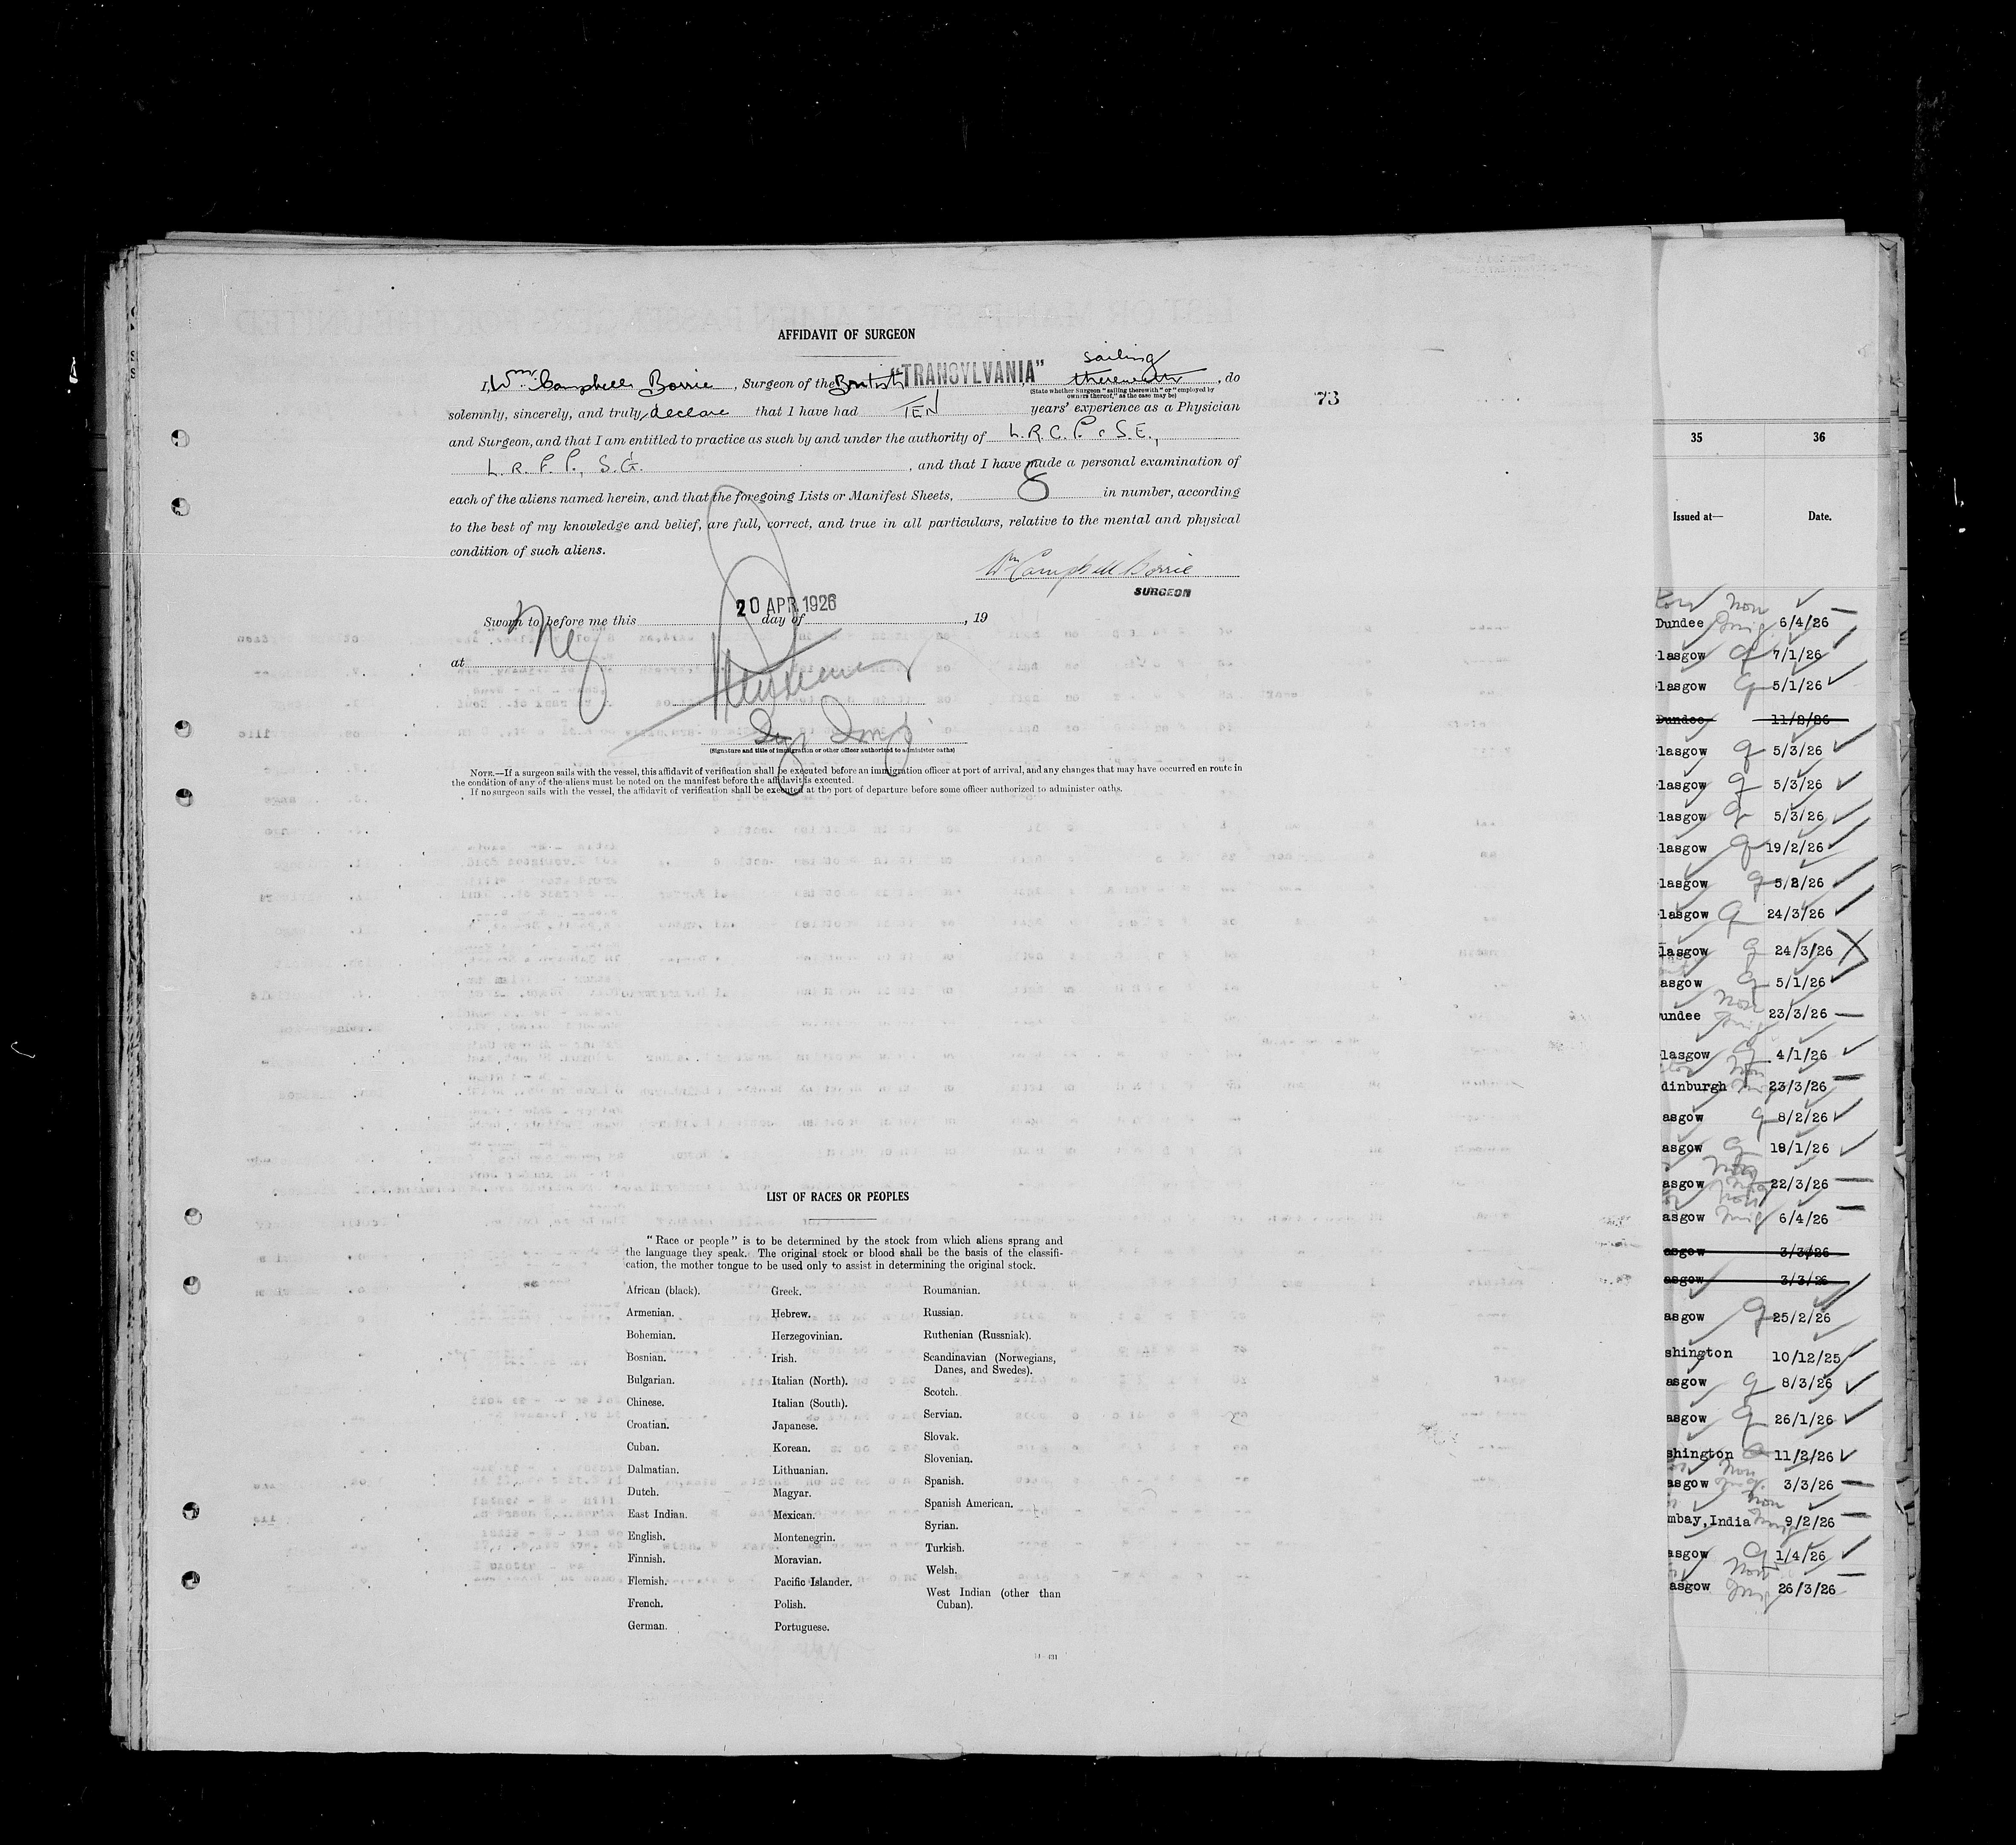 AFFIDAVIT OF SURGEON
sailing
I, Wm. Campbell Borrie, Surgeon of the British "TRANSYLVANIA", therewith, do
(State whether Surgeon "sailing therewith" or "employed by
owners thereof," as the case may be)
73
solemnly, sincerely, and truly declare that I have had TEN years' experience as a Physician
and Surgeon, and that I am entitled to practice as such by and under the authority of L.R.C.P. & S.E.,
L.R.F.P., S.G. , and that I have made a personal examination of
each of the aliens named herein, and that the foregoing Lists or Manifest Sheets, 8 in number, according
to the best of my knowledge and belief, are full, correct, and true in all particulars, relative to the mental and physical
condition of such aliens.
Wm Campbell Borrie
SURGEON
Sworn to before me this 20 APR 1926 day of , 19
at NY
(Signature and title of immigration or other officer authorized to administer oaths)
NOTE.—If a surgeon sails with the vessel, this affidavit of verification shall be executed before an immigration officer at port of arrival, and any changes that may have occurred en route in
the condition of any of the aliens must be noted on the manifest before the affidavit is executed.
If no surgeon sails with the vessel, the affidavit of verification shall be executed at the port of departure before some officer authorized to administer oaths.
LIST OF RACES OR PEOPLES
"Race or people" is to be determined by the stock from which aliens sprang and
the language they speak. The original stock or blood shall be the basis of the classifi-
cation, the mother tongue to be used only to assist in determining the original stock.
African (black).
Armenian.
Bohemian.
Bosnian.
Bulgarian.
Chinese.
Croatian.
Cuban.
Dalmatian.
Dutch.
East Indian.
English.
Finnish.
Flemish.
French.
German.
Greek.
Hebrew.
Herzegovinian.
Irish.
Italian (North).
Italian (South).
Japanese.
Korean.
Lithuanian.
Magyar.
Mexican.
Montenegrin.
Moravian.
Pacific Islander.
Polish.
Portuguese.
Roumanian.
Russian.
Ruthenian (Russniak).
Scandinavian (Norwegians,
Danes, and Swedes).
Scotch.
Servian.
Slovak.
Slovenian.
Spanish.
Spanish American.
Syrian.
Turkish.
Welsh.
West Indian (other than
Cuban).
35 36
Issued at— Date.
Dundee 6/4/26
lasgow 7/1/26
lasgow 5/1/26
Dundee 11/2/26
lasgow 5/3/26
lasgow 5/3/26
lasgow 5/3/26
lasgow 19/2/26
lasgow 5/2/26
lasgow 24/3/26
lasgow 24/3/26
asgow 5/1/26
undee 23/3/26
lasgow 4/1/26
dinburgh 23/3/26
asgow 8/2/26
asgow 18/1/26
asgow 22/3/26
asgow 6/4/26
asgow 3/3/26
asgow 3/3/26
asgow 25/2/26
shington 10/12/25
asgow 8/3/26
asgow 26/1/26
shington 11/2/26
asgow 3/3/26
mbay, India 9/2/26
asgow 1/4/26
asgow 26/3/26